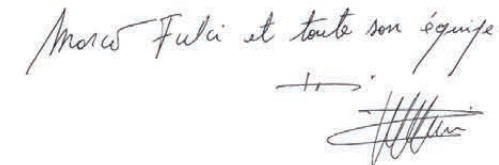 Marco Fulci et toute son équipe